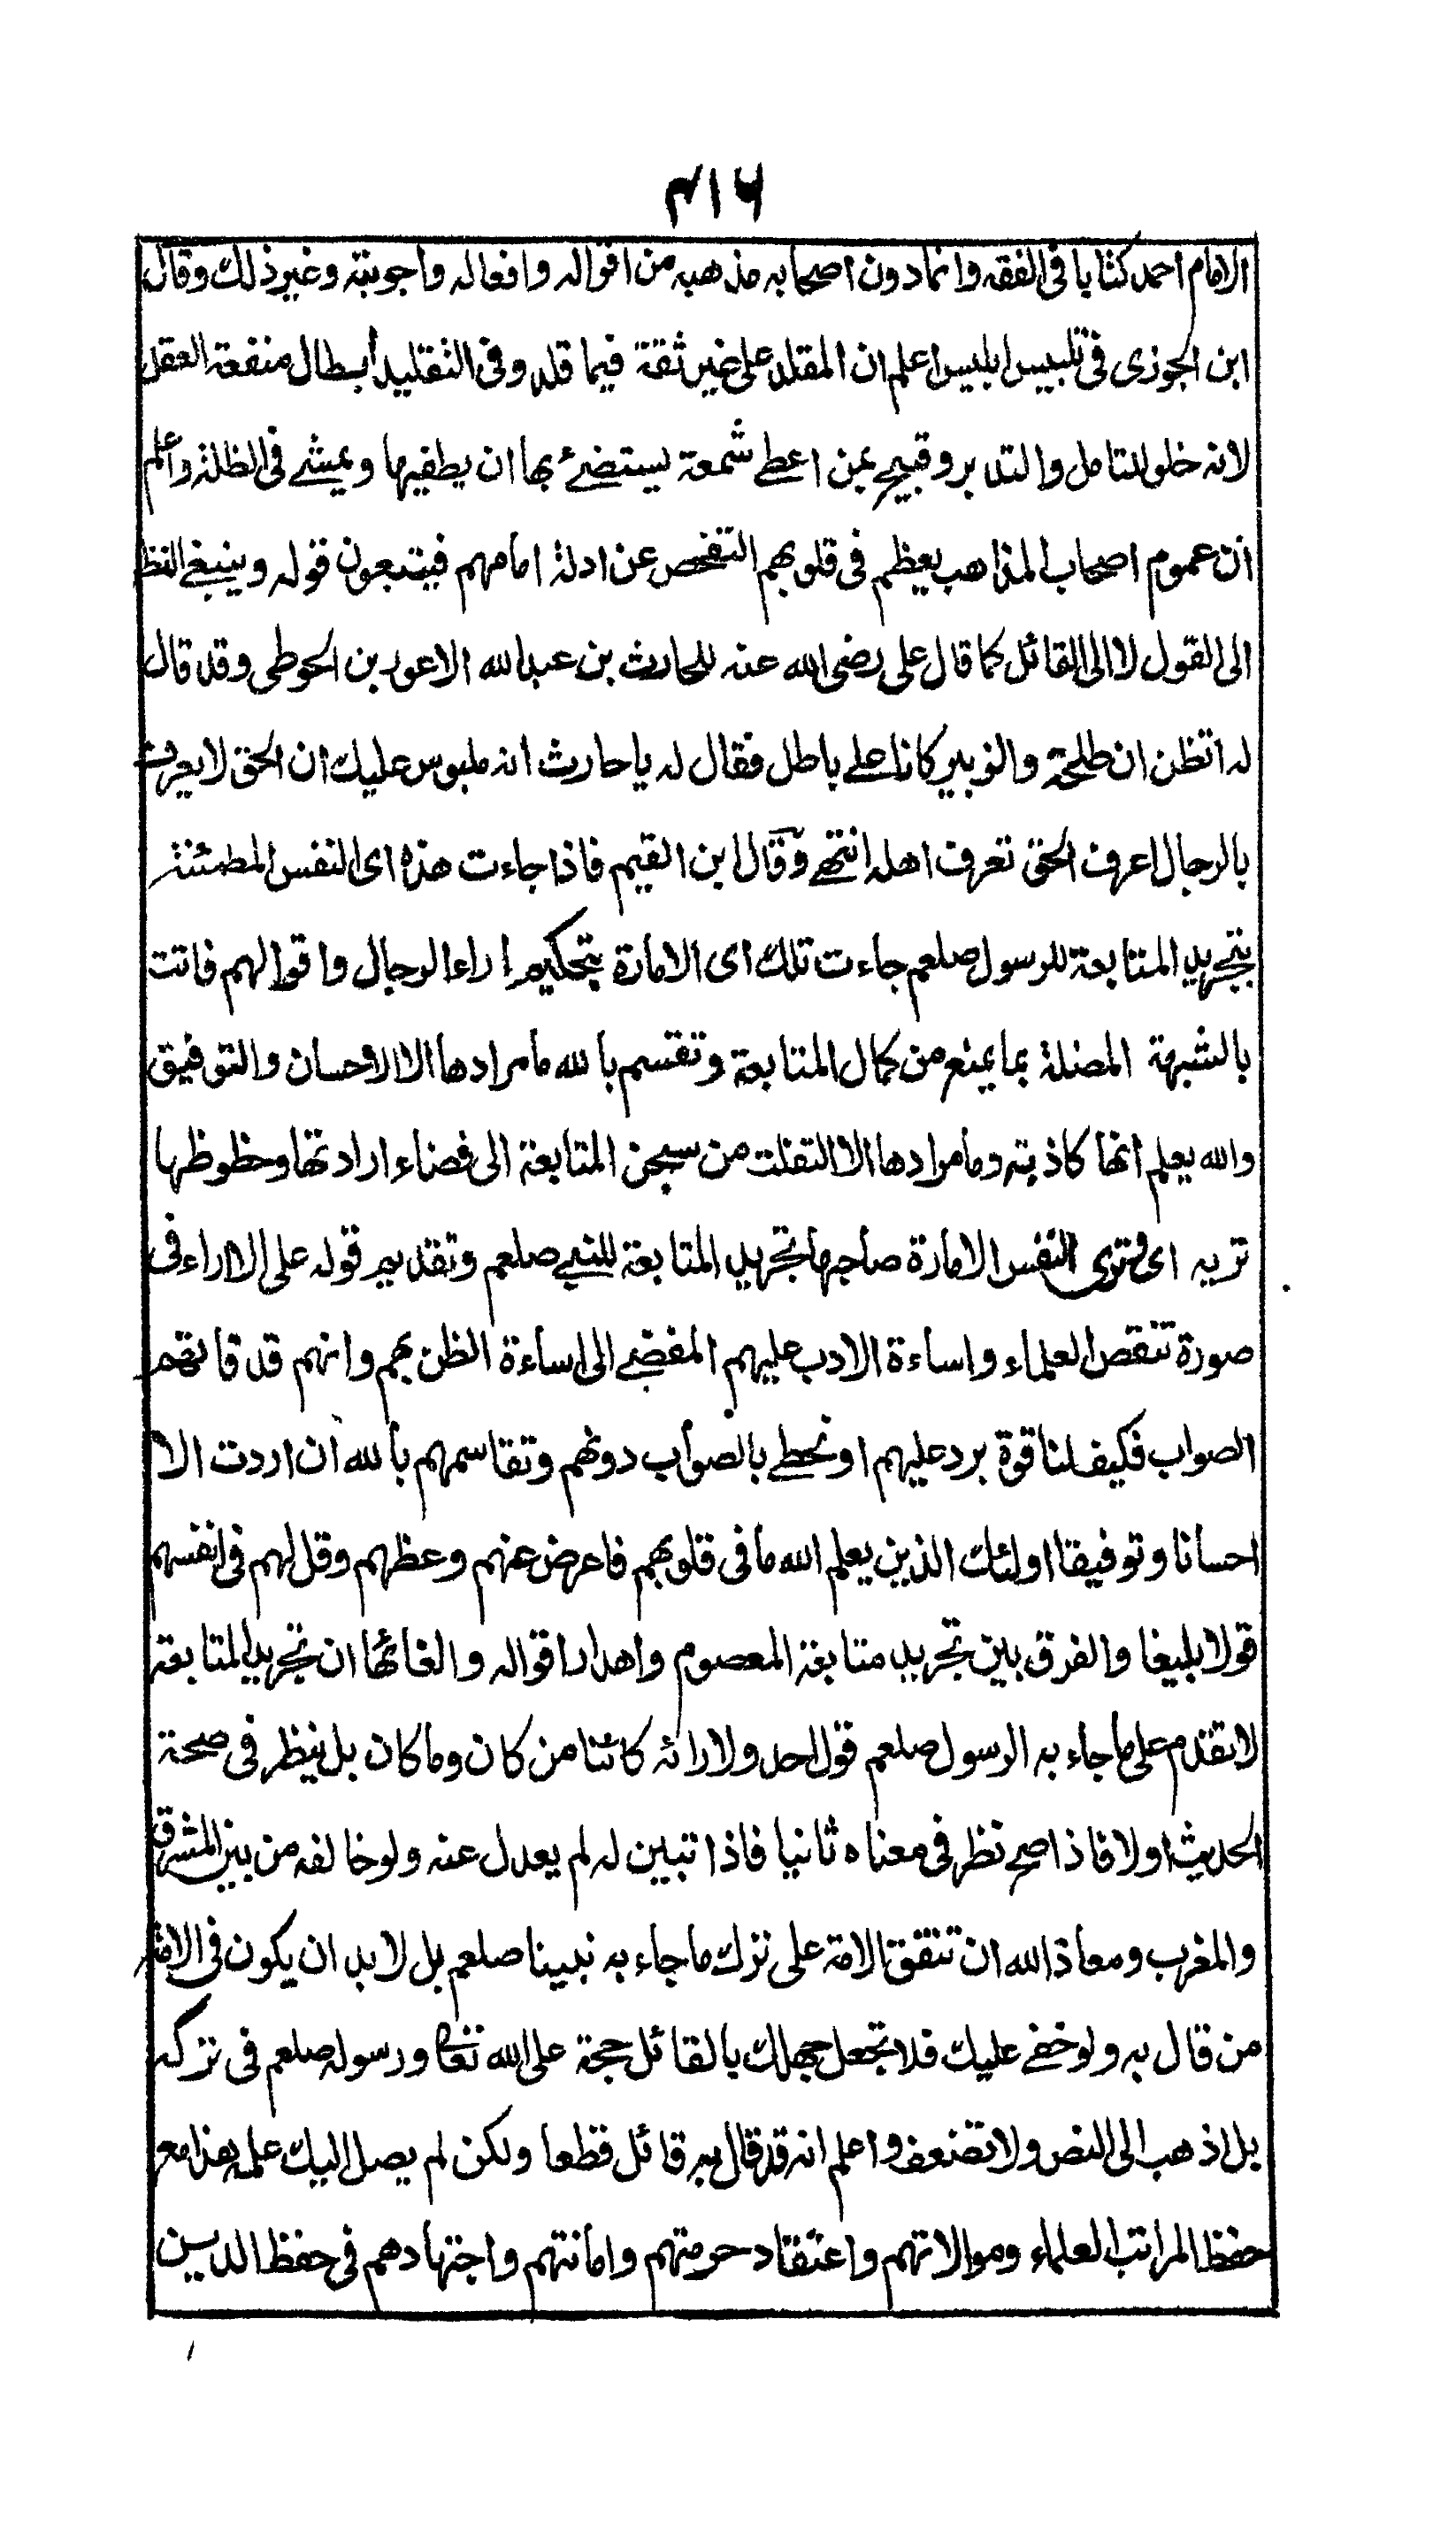 ۴۱۶
الامام احمد كتابا فى الفقه وانما دون اصحابه مذهبه من اقواله وافعاله واجوبته وغير ذلك وقال
ابن الجوزى فى تلبيس ابليس اعلم ان المقلد على غير ثقة فيما قلد وفى التقليد ابطال منفعة العقل
لانه خلق للتامل والتدبر وقبيح بمن اعطے شمعة يستضئ بها ان يطفيها ويمشے فى الظلمة واعلم
ان عموم اصحاب المذاهب يعظم فى قلوبهم التفحص عن ادلة امامهم فيتبعون قوله وينبغے النظر
الى القول لا الى القائل كما قال على رضى الله عنه للحارث بن عبد الله الاعور بن الحوطى وقد قال
له اتظن ان طلحة والزبير كانا علے باطل فقال له يا حارث انه ملبوس عليك ان الحق لا يعرف
بالرجال اعرف الحق تعرف اهله انتهے وقال ابن القيم فاذا جاءت هذه اى النفس المطمئنة
بتجريد المتابعة للرسول صلعم جاءت تلك اى الامارة بتحكيم اراء الرجال واقوالهم فاتت
بالشبهة المضلة بما يمنع من كمال المتابعة وتقسم بالله ما مرادها الا الاحسان والتوفيق
والله يعلم انها كاذبة وما مرادها الا التفلت من سجن المتابعة الى فضاء ارادتها وحظوظها
تريه اى وترى النفس الامارة صاحبها تجريد المتابعة للنبے صلعم وتقديم قوله على الاراء فى
صورة تنقص العلماء واساءة الادب عليهم المفضے الى اساءة الظن بهم وانهم قد فاتهم
الصواب فكيف لنا قوة برد عليهم او نحظے بالصواب دونهم وتقاسمهم بالله ان اردت الا
احسانا وتوفيقا اولئك الذين يعلم الله ما فى قلوبهم فاعرض عنهم وعظهم وقل لهم فى انفسهم
قولا بليغا والفرق بين تجريد متابعة المعصوم واهدار اقواله والغائها ان تجريد المتابعة
لا تقدم على ما جاء به الرسول صلعم قول احد ولا رائه كائنا من كان وما كان بل ينظر فى صحة
الحديث اولا فاذا صح نظر فى معناه ثانيا فاذا تبين له لم يعدل عنه ولو خالفه من بين المشرق
والمغرب ومعاذ الله ان تتفق الامة على ترك ما جاء به نبينا صلعم بل لا بد ان يكون فى الامة
من قال به ولو خفے عليك فلا تجعل جهلك بالقائل حجة على الله تعالى ورسوله صلعم فى تركه
بل اذهب الى النص ولا تضعف واعلم انه قد قال به قائل قطعا ولكن لم يصل اليك علمه هذا مع
حفظ المراتب العلماء وموالاتهم واعتقاد حرمتهم وامانتهم واجتهادهم فى حفظ الدين